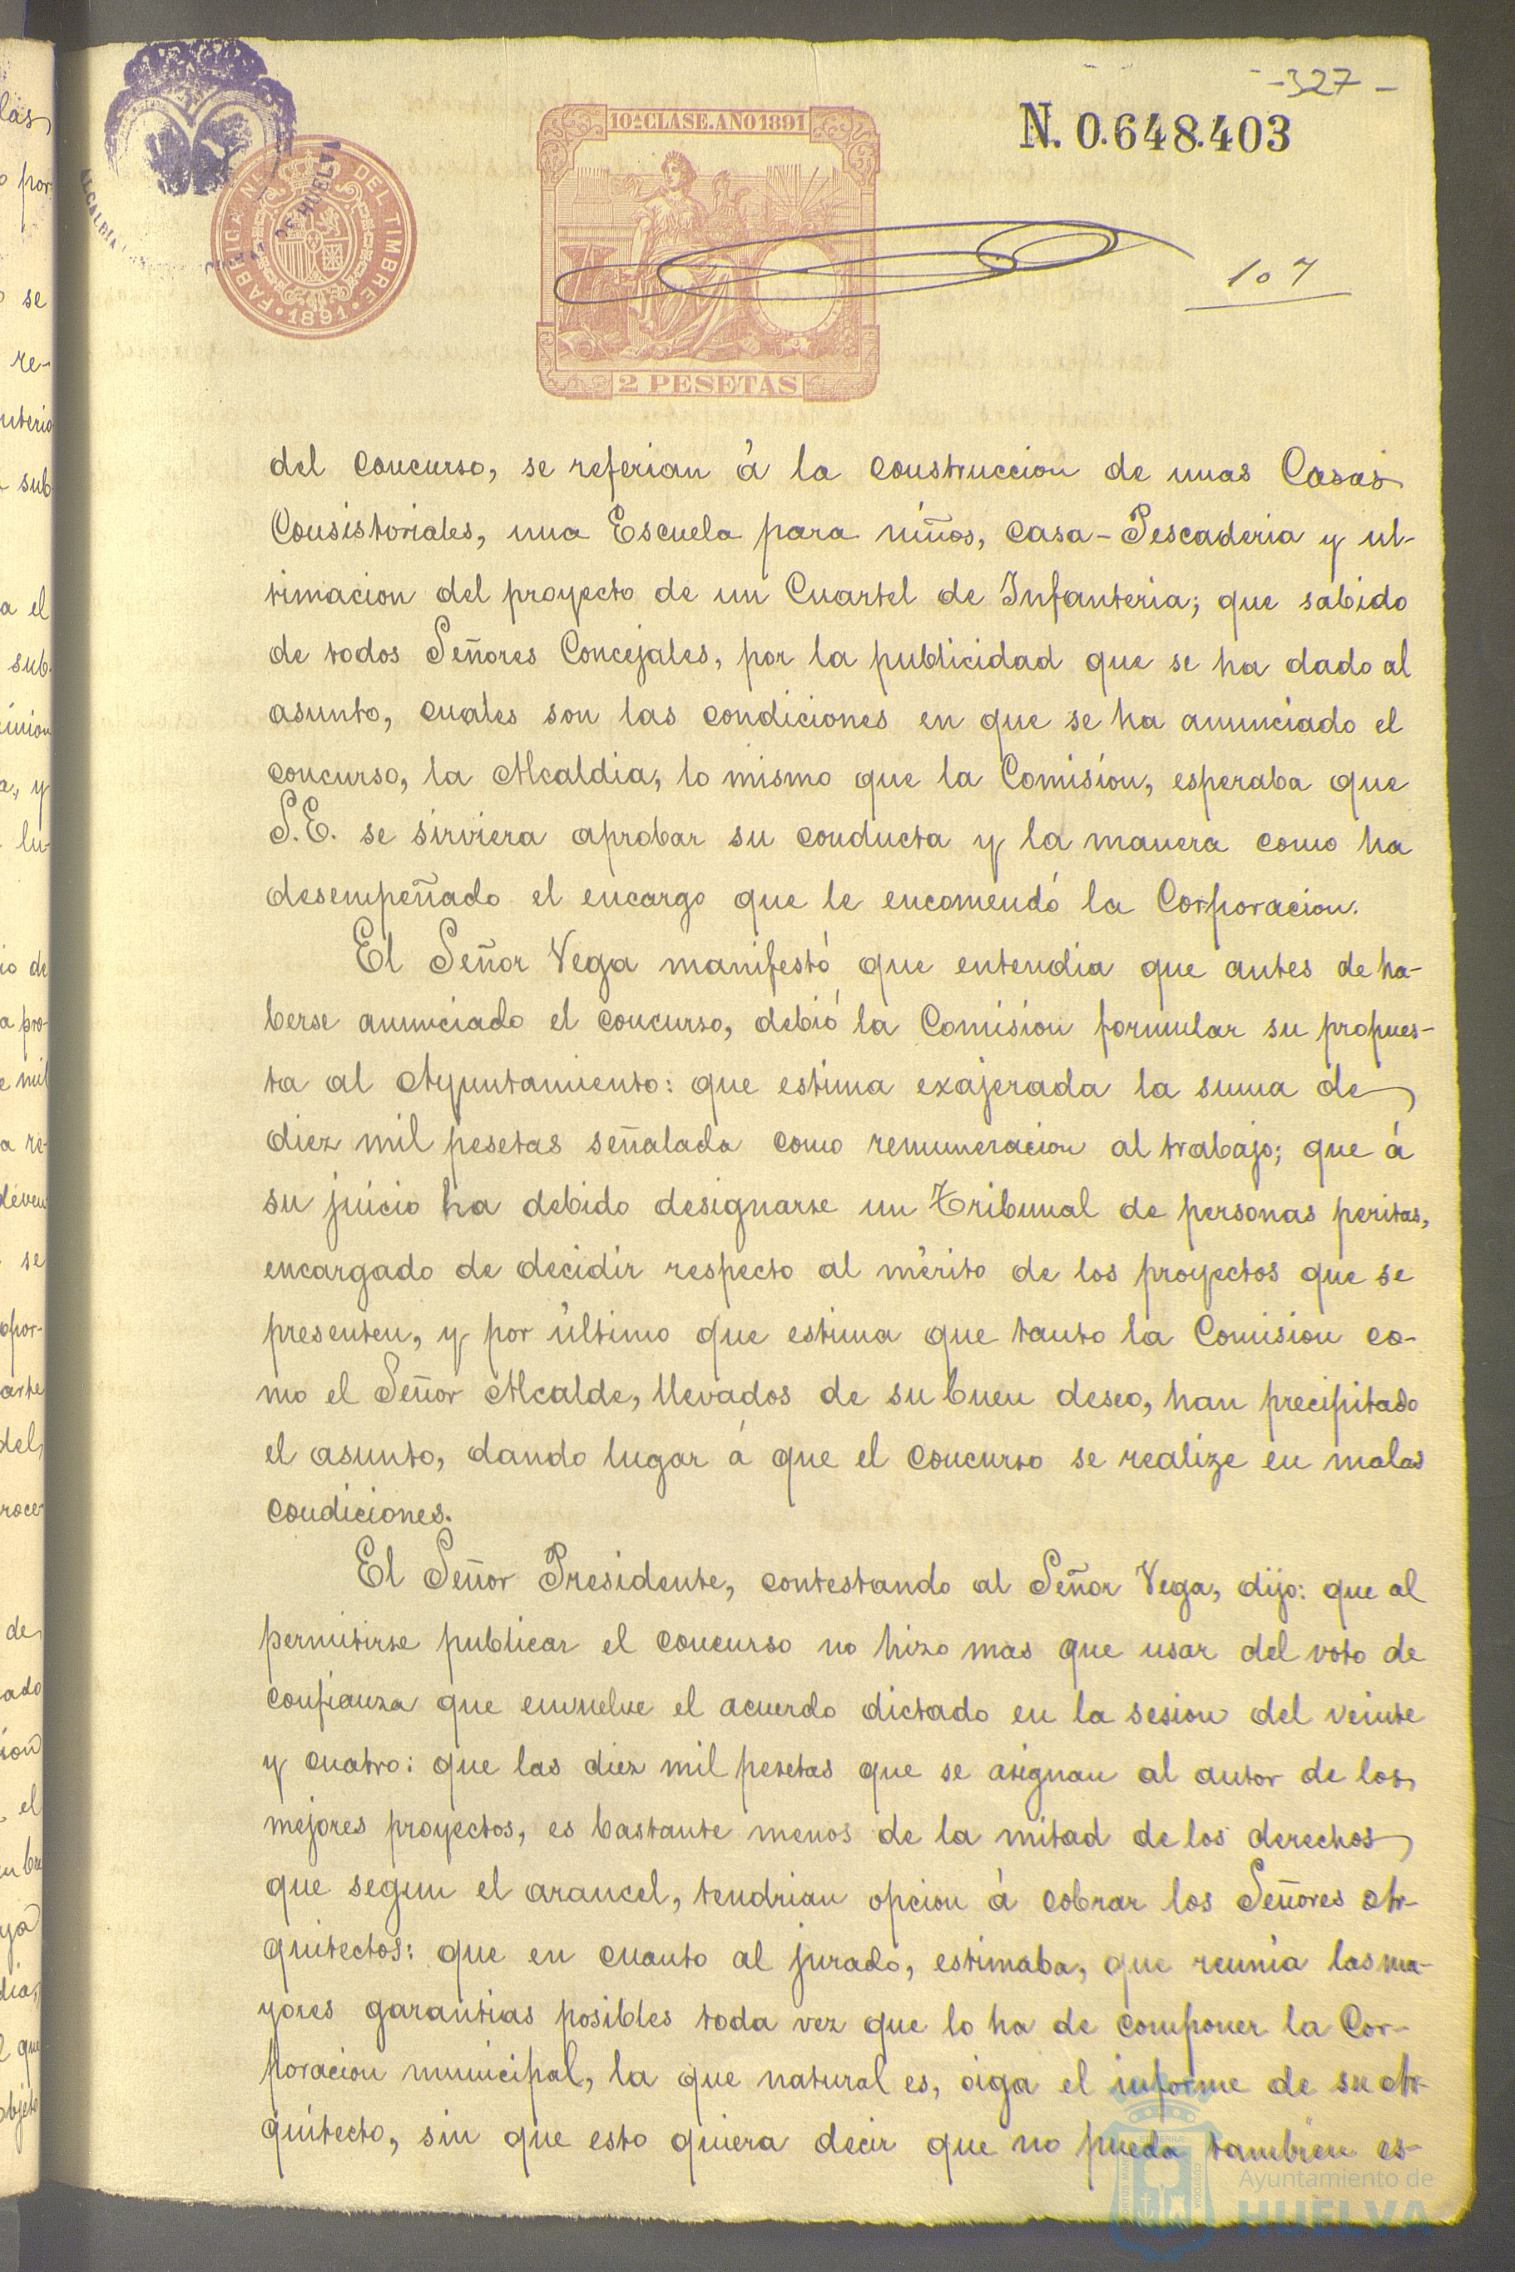 -327-
N. 0.648.403
10ª CLASE. AÑO 1891
FABRICA NL. DEL TIMBRE
1891
ALCALDIA
DE HUELVA
107
2 PESETAS
del concurso, se referian á la construccion de unas Casas
Consistoriales, una Escuela para niños, casa-Pescaderia y ul-
timacion del proyecto de un Cuartel de Infanteria; que sabido
de todos Señores Concejales, por la publicidad que se ha dado al
asunto, cuales son las condiciones en que se ha anunciado el
concurso, la Alcaldia, lo mismo que la Comisión, esperaba que
S.E. se sirviera aprobar su conducta y la manera como ha
desempeñado el encargo que le encomendó la Corporacion.
El Señor Vega manifestó que entendia que antes de ha-
berse anunciado el concurso, debió la Comision formular su propues-
ta al Ayuntamiento: que estima exajerada la suma de
diez mil pesetas señalada como remuneracion al trabajo; que á
su juicio ha debido designarse un Tribunal de personas peritas,
encargado de decidir respecto al mérito de los proyectos que se
presenten, y por último que estima que tanto la Comision co-
mo el Señor Alcalde, llevados de su buen deseo, han precipitado
el asunto, dando lugar á que el concurso se realize en malas
condiciones.
El Señor Presidente, contestando al Señor Vega, dijo: que al
permitirse publicar el concurso no hizo mas que usar del voto de
confianza que envuelve el acuerdo dictado en la sesion del veinte
y cuatro: que las diez mil pesetas que se asignan al autor de los
mejores proyectos, es bastante menos de la mitad de los derechos
que segun el arancel, tendrian opcion á cobrar los Señores Ar-
quitectos: que en cuanto al jurado, estimaba, que reunia las ma-
yores garantias posibles toda vez que lo ha de componer la Cor-
poracion municipal, la que natural es, oiga el informe de su Ar-
quitecto, sin que esto quiera decir que no pueda tambien es-
Ayuntamiento de
HUELVA